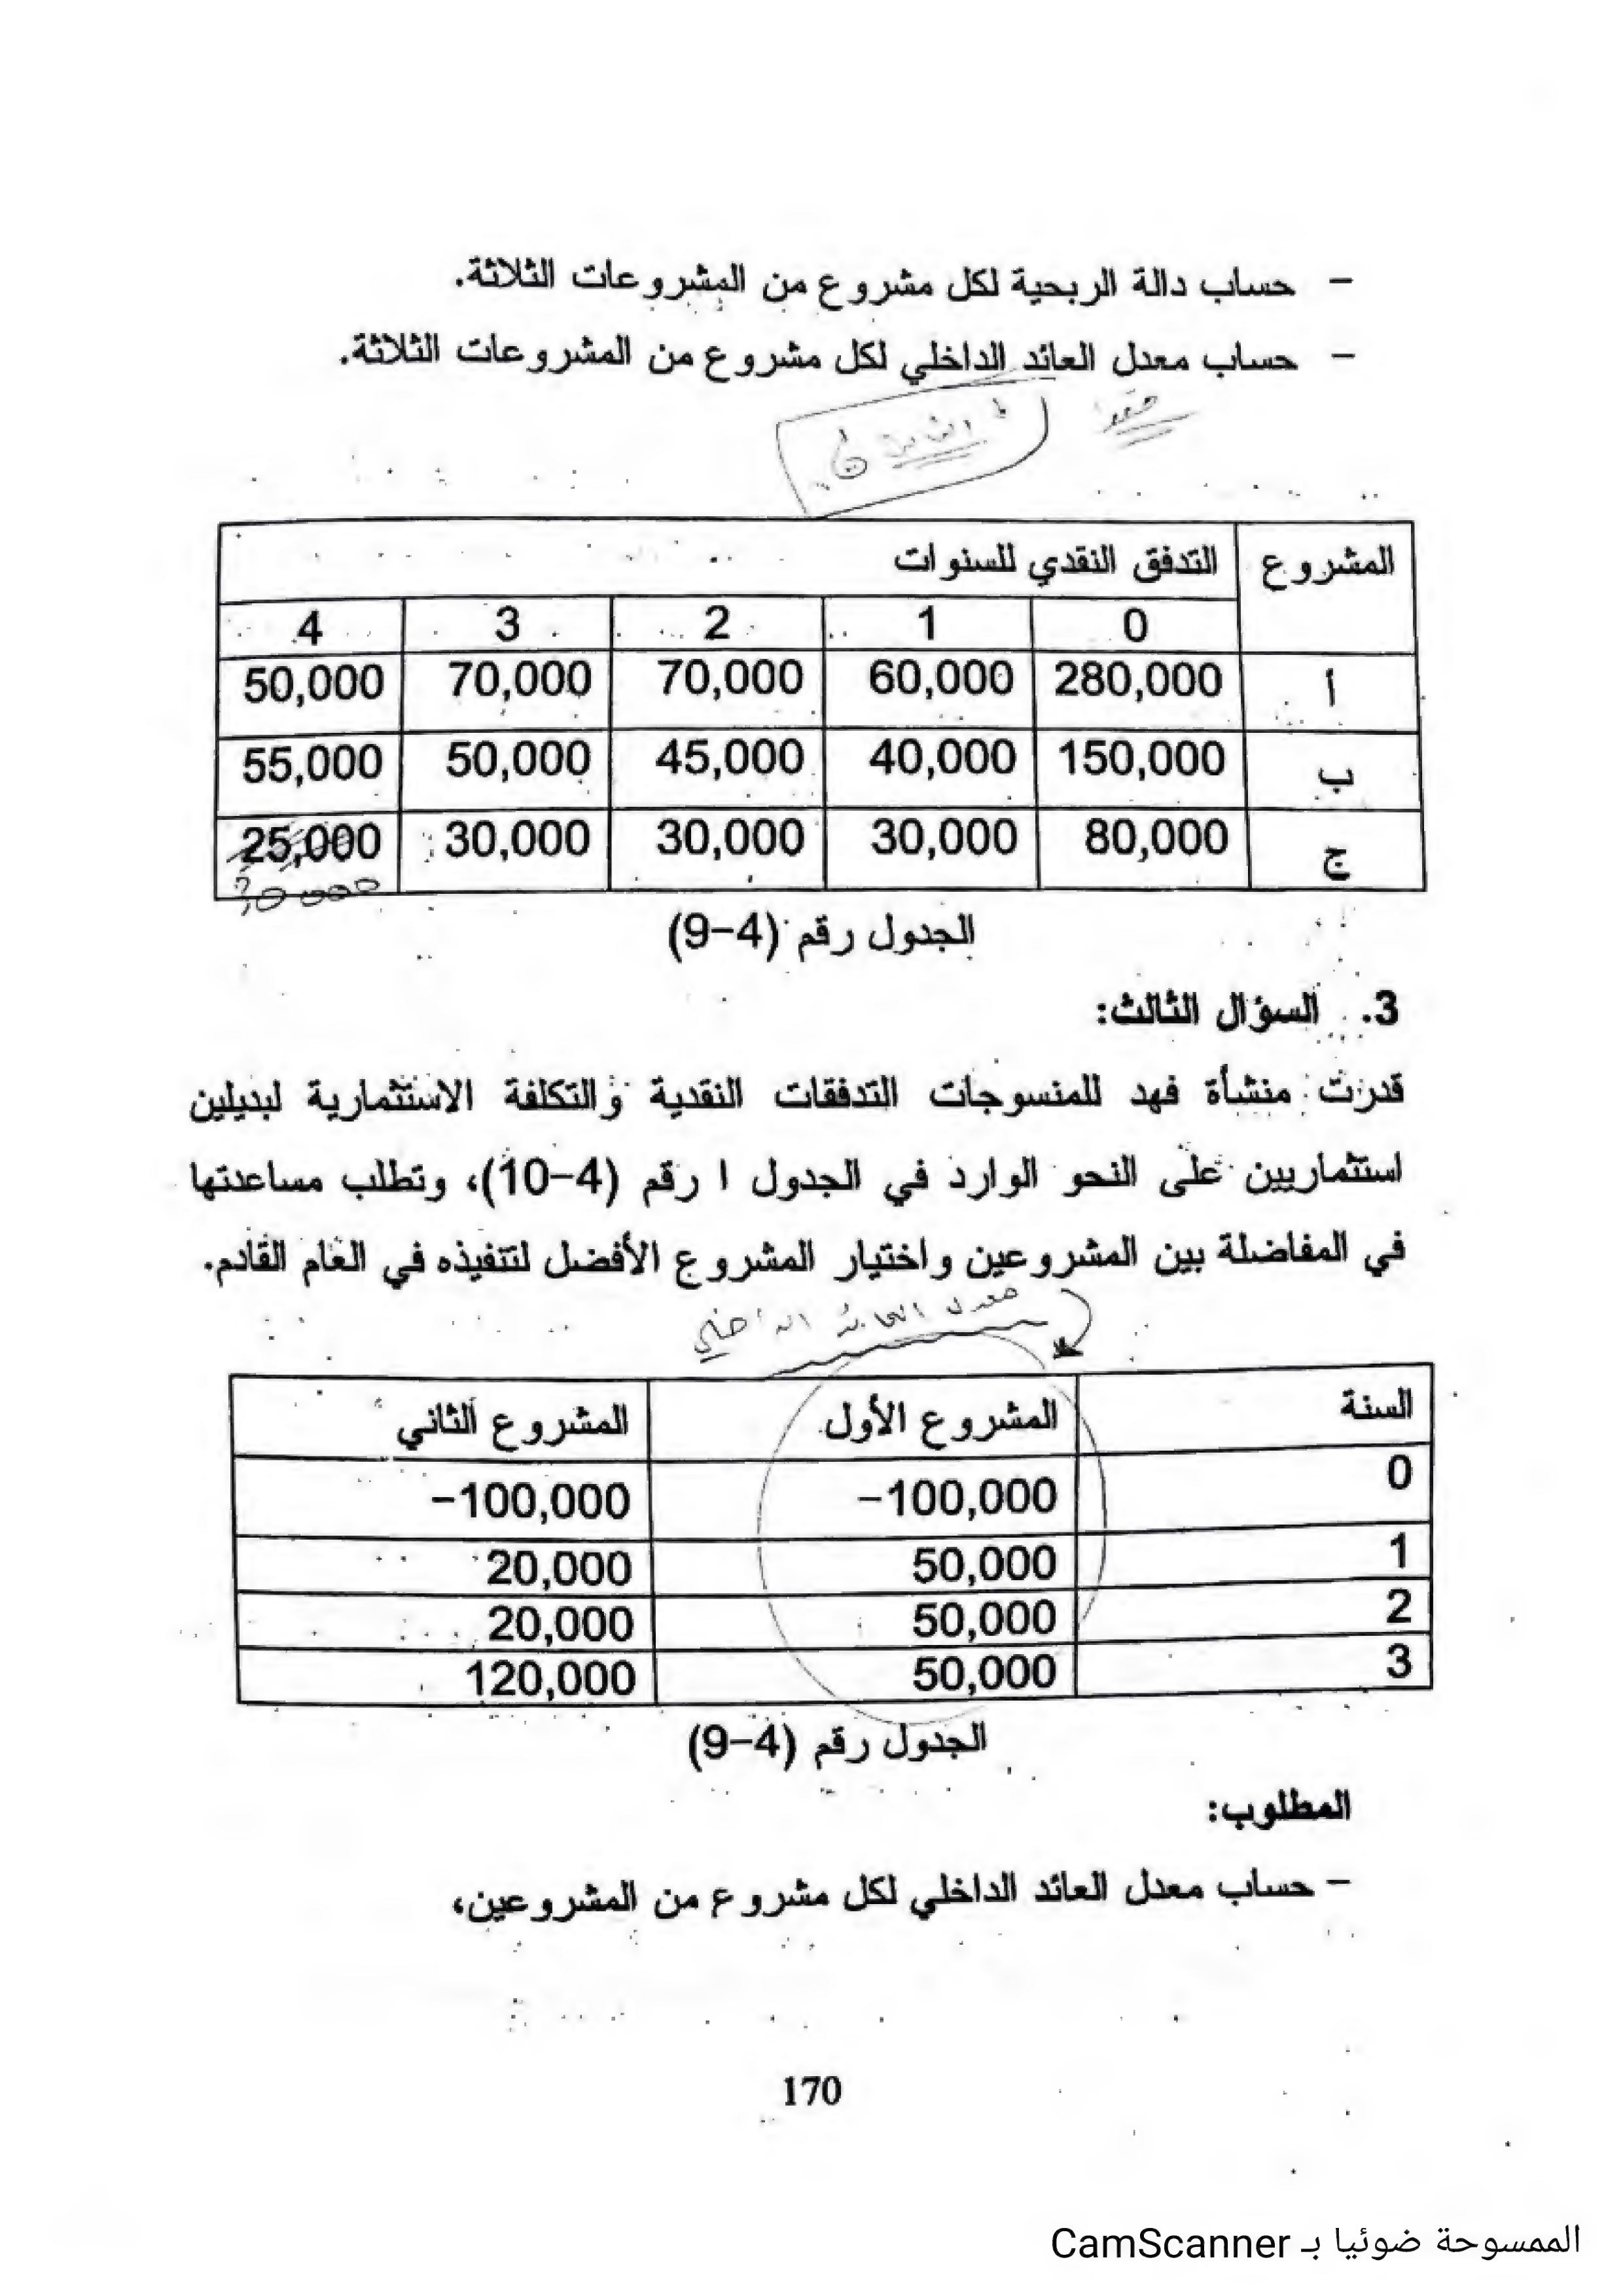 – حساب دالة الربحية لكل مشروع من المشروعات الثلاثة.
– حساب معدل العائد الداخلي لكل مشروع من المشروعات الثلاثة.
المشروع التدفق النقدي للسنوات
0 1 2 3 4
أ 280,000 60,000 70,000 70,000 50,000
ب 150,000 40,000 45,000 50,000 55,000
ج 80,000 30,000 30,000 30,000 25,000
الجدول رقم (4–9)
3. السؤال الثالث:
قدرت منشأة فهد للمنسوجات التدفقات النقدية والتكلفة الاستثمارية لبديلين
استثماريين على النحو الوارد في الجدول ا رقم (4–10)، وتطلب مساعدتها
في المفاضلة بين المشروعين واختيار المشروع الأفضل لتنفيذه في العام القادم.
معدل العائد الداخلي
السنة المشروع الأول المشروع الثاني
0 –100,000 –100,000
1 50,000 20,000
2 50,000 20,000
3 50,000 120,000
الجدول رقم (4–9)
المطلوب:
– حساب معدل العائد الداخلي لكل مشروع من المشروعين،
170
الممسوحة ضوئيا بـ CamScanner